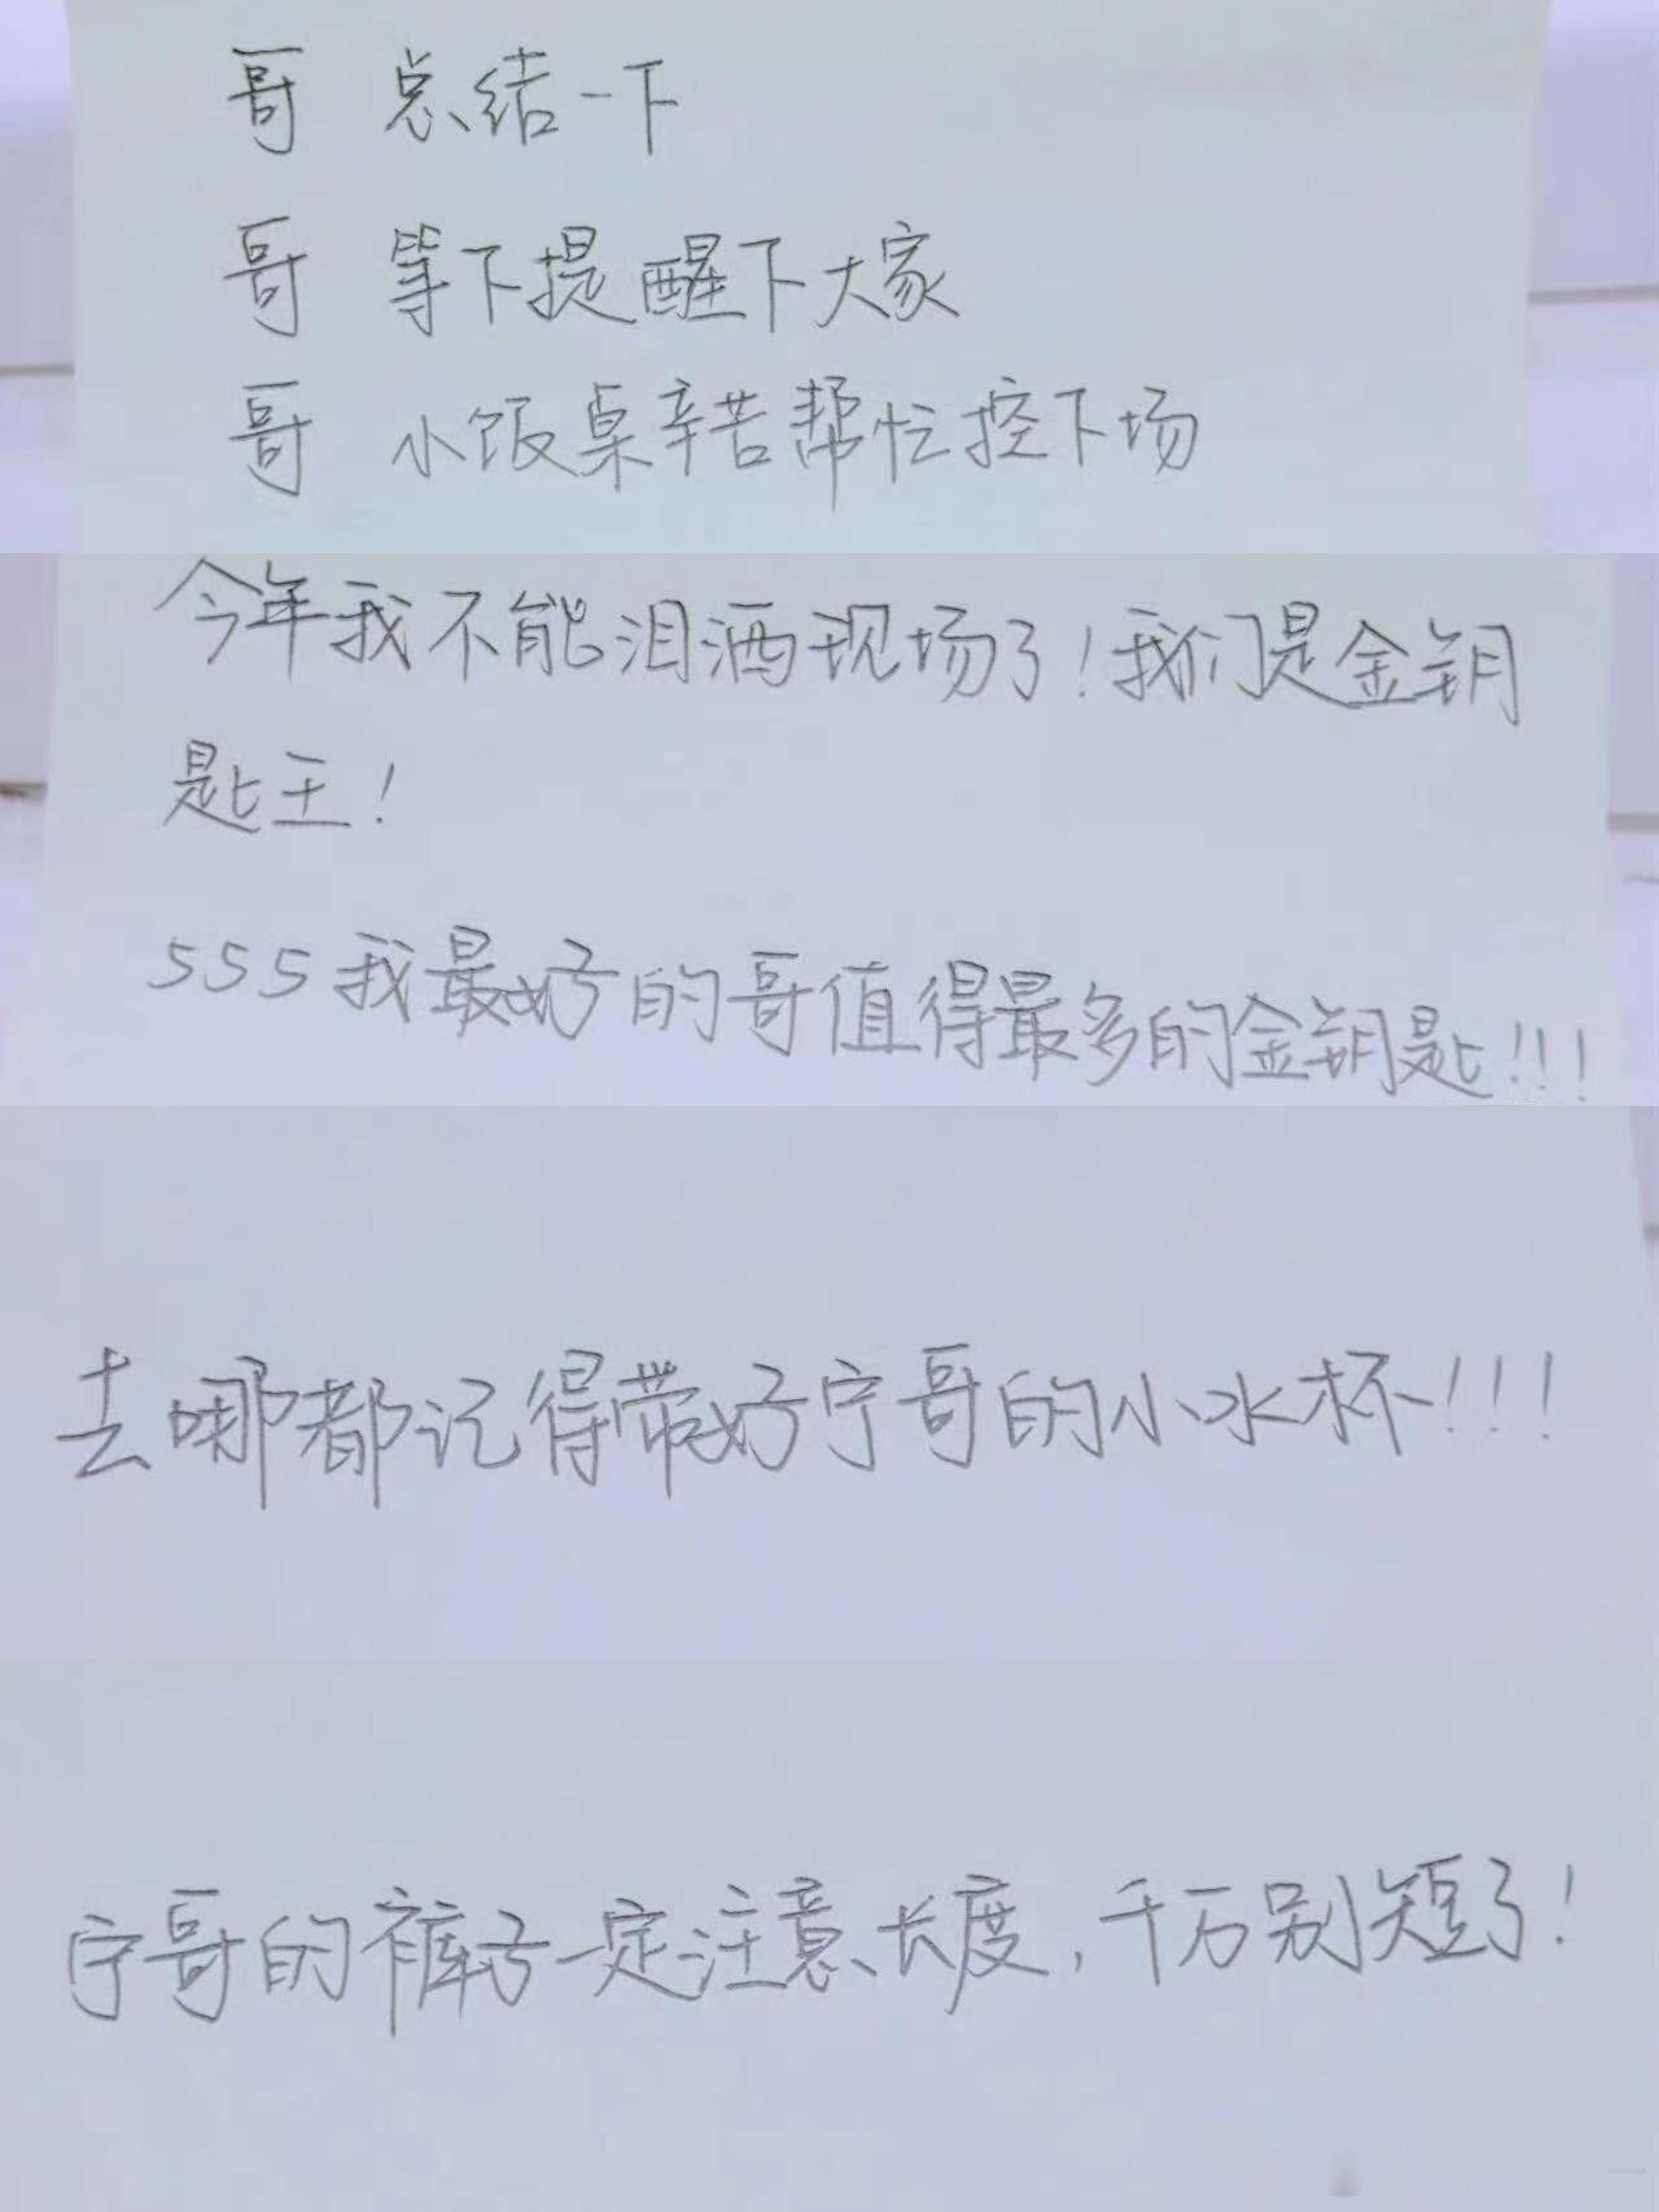 哥 总结一下
哥 等下提醒下大家
哥 小饭桌辛苦帮忙控下场
今年我不能泪洒现场了！我们是金钥
匙王！
555我最好的哥值得最多的金钥匙！！！
去哪都记得带好宁哥的小水杯！！！
宁哥的裤子一定注意长度，千万别短了！